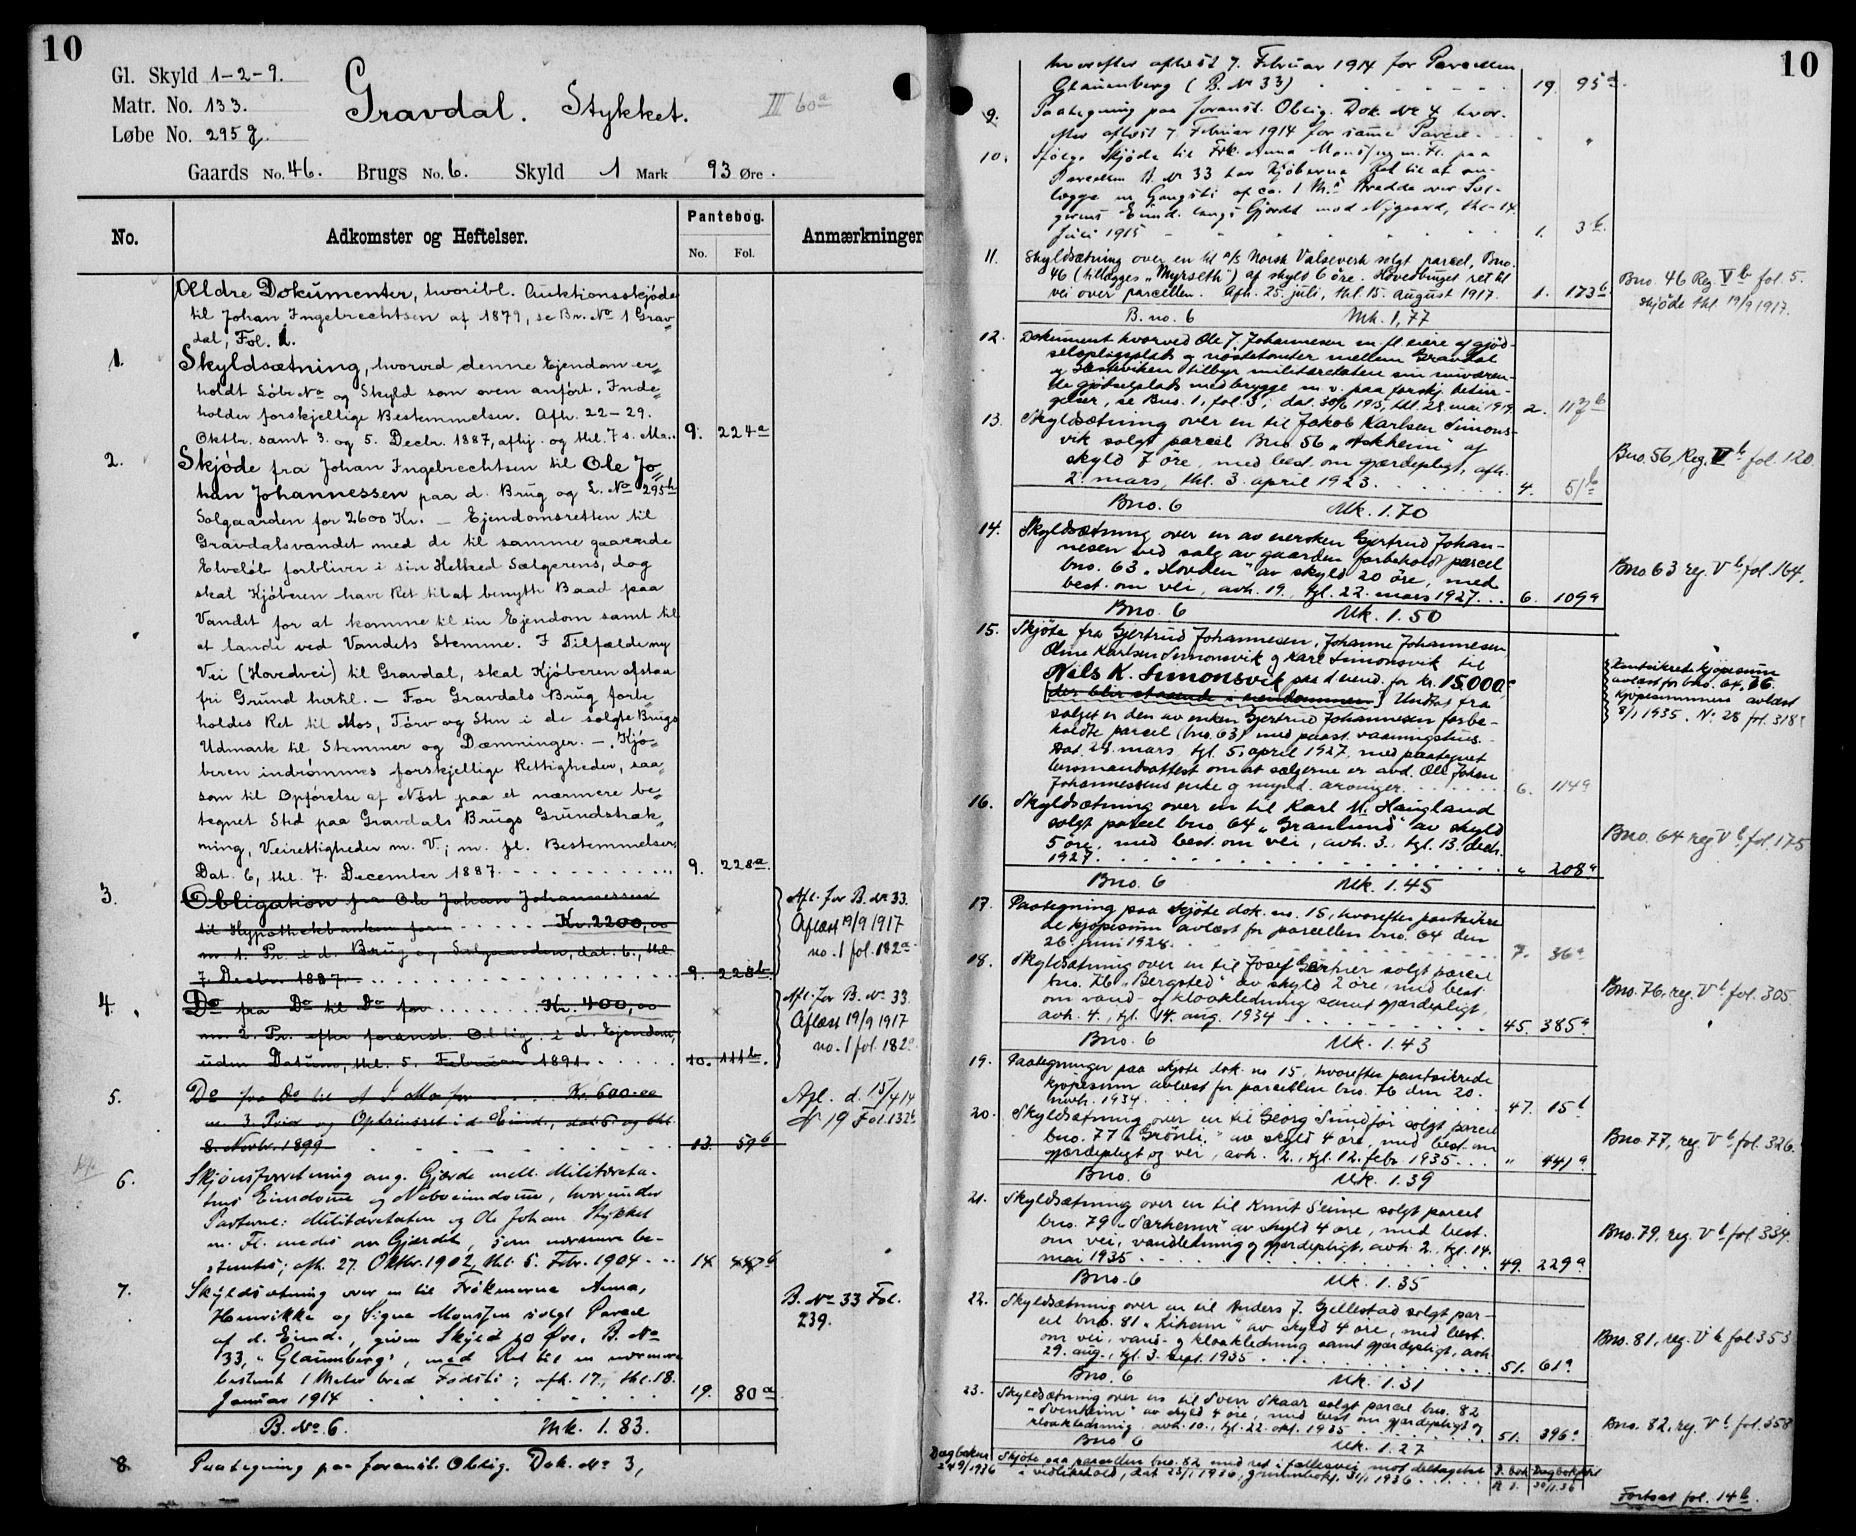 10
Gl. Skyld 1-2-9.
Matr. No. 133.
Løbe No. 295 g.
Gravdal. Stykket.
III 60a
Gaards No. 46. Brugs No. 6. Skyld 1 Mark 93 Øre.
No.
Adkomster og Heftelser.
Pantebog.
No. Fol.
Anmærkninger
Ældre Dokumenter, hvoribl. Auktionsskjøde
til Johan Ingebrechtsen af 1879, se Br. No 1 Grav=
dal, Fol. 1.
1. Skyldsætning, hvorved denne Ejendom er=
holdt Løbe No og Skyld som oven anført. Inde=
holder forskjellige Bestemmelser. Afh. 22-29.
Oktbr. samt 3. og 5. Decbr. 1887, afhj. og thl. 7 s. M. 9. 224a
2. Skjøde fra Johan Ingebrechtsen til Ole Jo=
han Johannessen paa d. Brug og L. No 295h
Solgaarden for 2600 Kr. — Ejendomsretten til
Gravdalsvandet med de til samme gaaende
Elveløb forbliver i sin Helhed Sælgerens, dog
skal Kjøberen have Ret til at benytte Baad paa
Vandet for at komme til sin Ejendom samt til
at lande ved Vandets Stemme. I Tilfælde ny
Vei (Hovedvei) til Gravdal, skal Kjøberen afstaa
fri Grund hertil. — For Gravdals Brug forbe
holdes Ret til Mos, Törv og Sten i de solgte Brugs
Udmark til Stemmer og Dæmninger. — Kjø=
beren indrømmes forskjellige Rettigheder, saa=
som til Opførelse af Nøst paa et nærmere be=
tegnet Sted paa Gravdals Brugs Grundstræk=
ning, Veirettigheder m. V.; m. fl. Bestemmelser
Dat. 6, thl. 7. December 1887. 9. 228a
3. Obligation fra Ole Johan Johannessen
til Hypothekbanken for Kr. 2200,00
m. 1. Pr. i d. Brug og Solgaarden, dat. 6., thl.
7. Decbr. 1887. 9. 228b
Afl. for B. No 33.
Aflæst 19/9 1917
no. 1 fol. 182a
4. Do fra Do til Do for Kr. 400,00
m. 2. Pr. efter foranst. Oblig. i d. Ejendom,
uden Datum, thl. 5. Februar 1891. 10. 111b.
Afl. for B. No 33.
Aflæst 19/9 1917
no. 1 fol. 182a
5. Do fra Do til for Kr. 600.00
m. 3. Prior og Opt i d. Eiend., dat 5 og thl.
8. Novbr. 1899 13. 59b
Afl. d. 15/4 14
19 Fol. 132b
6. Skjønsforretning ang. Gjerde mell. Militæreta-
tens Eiendome og Naboeiendome, hvorunder
Parterne: Militæretaten og Ole Johan Stykket
m. Fl. enedes om Gjærdet, som nærmere be-
stemtes; afh. 27. Oktbr. 1902, thl. 5. Febr. 1904. 14. 447b
7. Skyldsætning over en til Frøknerne Anna,
Henrikke og Signe Monssen solgt Parcel
af d. Eiend., given Skyld 10 Øre, B. No
33, "Glaumberg", med Ret til en nærmere
bestemt 1 Meter bred Fodsti; afh. 17., thl. 18.
Januar 1914 19. 80a
B. No 33 Fol.
239.
B. No 6. Mk. 1.83.
8. Paategning paa foranst. Oblig. Dok. No 3,
10
hvorefter aflæst 7. Februar 1914 for Parcellen
Glaumberg (B. No 33) 19. 95a.
9. Paategning paa foranst. Oblig. Dok. No 4 hvor-
efter aflæst 7. Februar 1914 for samme Parcel. " "
10. Ifølge Skjøde til Frk. Anna Monssen m. Fl. paa
Parcellen B. No 33 har Kjøberne Ret til at an-
lægge en Gangsti af ca. 1 M.s Bredde over Sæl-
gerens Eiend. langs Gjerdet mod Nygaard, thl. 14.
Juli 1915 1. 3b.
11. Skyldsætning over en til a/s Norsk Valseverk solgt parcel, Bno.
46 (tillægges "Myrseth") af skyld 6 öre. Hovedbruget ret til
vei over parcellen. Afh. 25. juli, thl. 15. august 1917. 1. 173b
Bno. 46 Reg. Vb fol. 5.
skjöde thl. 19/9 1917.
B. no. 6 Mk. 1,77
12. Dokument hvorved Ole J. Johannesen m. fl. eiere af gjød-
selopligsplads og nöstetomter mellem Gravdal
og tilbyr militæretaten sin nuværen-
de gjødselplads med brygge m. v. paa forskj. betin-
gelser, se Bno. 1, fol. 3, dat. 30/6 1915, thl. 28. mai 1919. 2. 117b
13. Skyldsætning over en til Jakob Karlsen Simons-
vik solgt parcel Bno 56 "Askheim" af
skyld 7 öre, med best. om gjærdepligt, afh.
2. mars, thl. 3. april 1923. 4. 51b
Bno. 56 Reg. Vb fol. 120.
Bno. 6 Mk. 1.70
14. Skyldsætning over en av eiersken Gjertrud Johan-
nesen ved salg av gaarden forbeholdt parcel
bno. 63 "Hovden" av skyld 20 öre, med
best. om vei, avh. 19., tgl. 22. mars 1927. 6. 109a
Bno 63 reg. Vb fol. 164.
Bno. 6 Mk. 1.50
15. Skjöte fra Gjertrud Johannesen, Johanne Johannesen
Oline Karlsen Simonsvik og Karl Simonsvik til
Nils K. Simonsvik paa d. eiend. for kr. 15000.-
[der blir staaende i eiendommen.] Undtat fra
salget er den av enken Gjertrud Johannesen forbe-
holdte parcel (bno. 63) med paast. vaaningshus.
Dat. 28. mars, tgl. 5. april 1927, med paategnet
lensmandsattest om at sælgerne er avd. Ole Johan
Johannessens enke og myld. arvinger. 6. 114a
Pantsikrede kjöpesum
avlæst for bno. 64, 76.
Kjöpesummen avlæst
8/1 1935. No 28 fol. 318a
16. Skyldsætning over en til Karl M. Haugland
solgt parcel bno. 64 "Granlund" av skyld
5 öre, med best. om vei, avh. 3., tgl. 13. decbr.
1927. " 208a
Bno. 64 reg Vb fol. 175
Bno. 6 Mk. 1.45
17. Paategning paa skjöte dok. no. 15, hvorefter pantsikre
de kjöpesum avlæst for parcellen bno. 64 den
26. juni 1928. 7. 36a
18. Skyldsætning over en til Josef solgt parcel
bno. 76 "Bergsted" av skyld 2 öre, med best.
om vand- og kloakledning samt gjærdepligt,
avh. 4., tgl. 14. aug. 1934 45. 385a
Bno. 76, reg. Vb fol. 305.
Bno. 6 Mk. 1.43
19. Paategninger paa skjöte dok. no 15, hvorefter pantsikrede
kjöpesum avlæst for parcellen bno. 76 den 20.
novb. 1934. 47. 15b
20. Skyldsætning over en til Georg Sundfør solgt parcel
bno. 77 "Grönli" av skyld 4 öre, med best. om
gjærdepligt og vei, avh. 2., tgl. 12. febr. 1935. " 441a
Bno 77, reg. Vb fol. 326.
Bno. 6 Mk. 1.39
21. Skyldsætning over en til Knut Seime solgt parcel
bno. 79 av skyld 4 öre, med best.
om vei, vandledning og gjærdepligt, avh. 2., tgl. 14.
mai 1935 49. 229a
Bno. 79, reg. Vb fol 334.
Bno. 6 Mk. 1.35
22. Skyldsætning over en til Anders J. Gjellestad solgt par-
cel bno. 81 av skyld 4 öre, med best.
om vei, vand- og kloakledning samt gjærdepligt, avh.
29. aug., tgl. 3. sept. 1935 51. 61a
Bno. 81, reg. Vb fol 353
Bno. 6 Mk. 1.31
23. Skyldsætning over en til Sven Skaar solgt parcel bno. 82
"Svenheim" av skyld 4 öre, med best om gjærdepligt og
kloakledning, avh. 10., tgl. 22. okt. 1935 51. 396a
Bno. 82, reg. Vb fol. 358
Bno 6 Mk. 1.27
Dagboknr
249/1936
Skjöte paa parcellen bno. 82 med ret i fellesvei mot deltagelse
i vedlikehold, dat 23/1 1936, grunnbokf. 31/1 1936
Dagbokført
Fortsat fol. 14b.